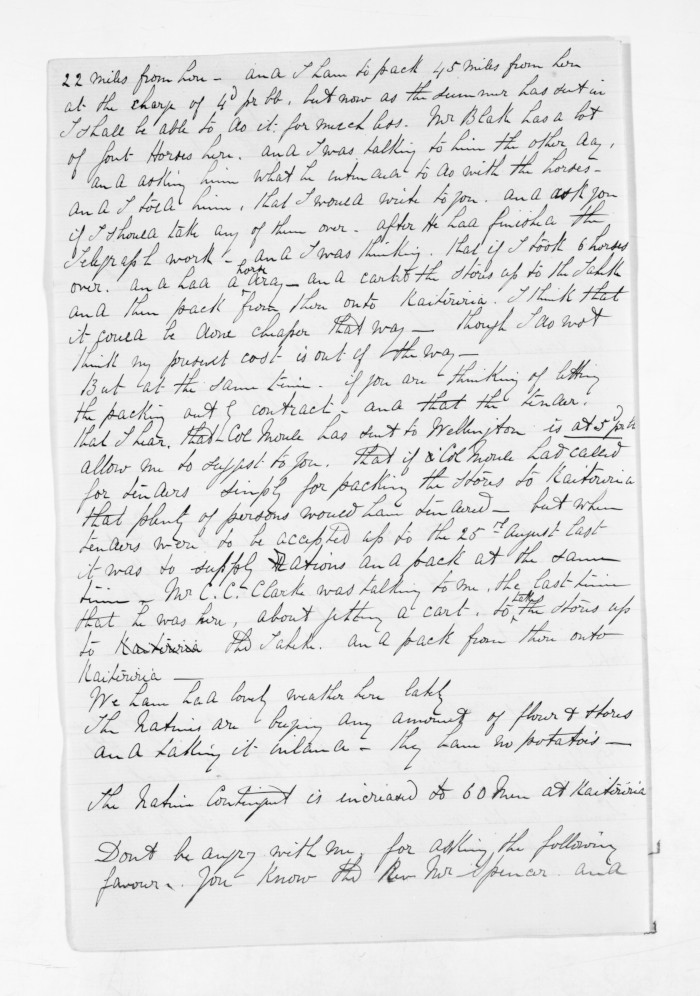 22 miles from here - and I have to pack 45 miles from here
at the charge of 4d pr lb, but now as the summer has set in
I shall be able to do it for much less. Mr Black has a lot
of Govt Horses here. and I was talking to him the other day,
and asking him what he intended to do with the horses -
and I told him, that I would write to you. and ask you
if I should take any of them over. after He had finished the
Telegraph work - and I was thinking. that if I took 6 horses
over. and had a horse dray - and carted the stores up to the Taheke
and then pack from there onto Kaiteriria. I think that
it could be done cheaper that way - though I do not
think my present cost is out of the way -
But at the same time. if you are thinking of letting
the packing out by contract - and that the tender.
that I hear, that Col Moule has sent to Wellington is at 5d pr lb
allow me to suggest to you. That if Col Moule had called
for tenders simply for packing the stores to Kaiteriria
that plenty of persons would have tendered - but when
tenders were to be accepted up to the 25th August last
it was to supply Rations and pack at the same
time - Mr C. C. Clarke was talking to me, the last time
that he was here, about getting a cart. to take the stores up
to Kaiteriria the Taheke. and pack from there onto
Kaiteriria -
We have had lovely weather here lately
The Natives are buying any amount of flour & stores
and taking it inland - they have no potatoes -
The Native Contingent is increased to 60 Men at Kaiteriria
Dont be angry with me, for asking the following
favour. You Know the Rev Mr Spencer and